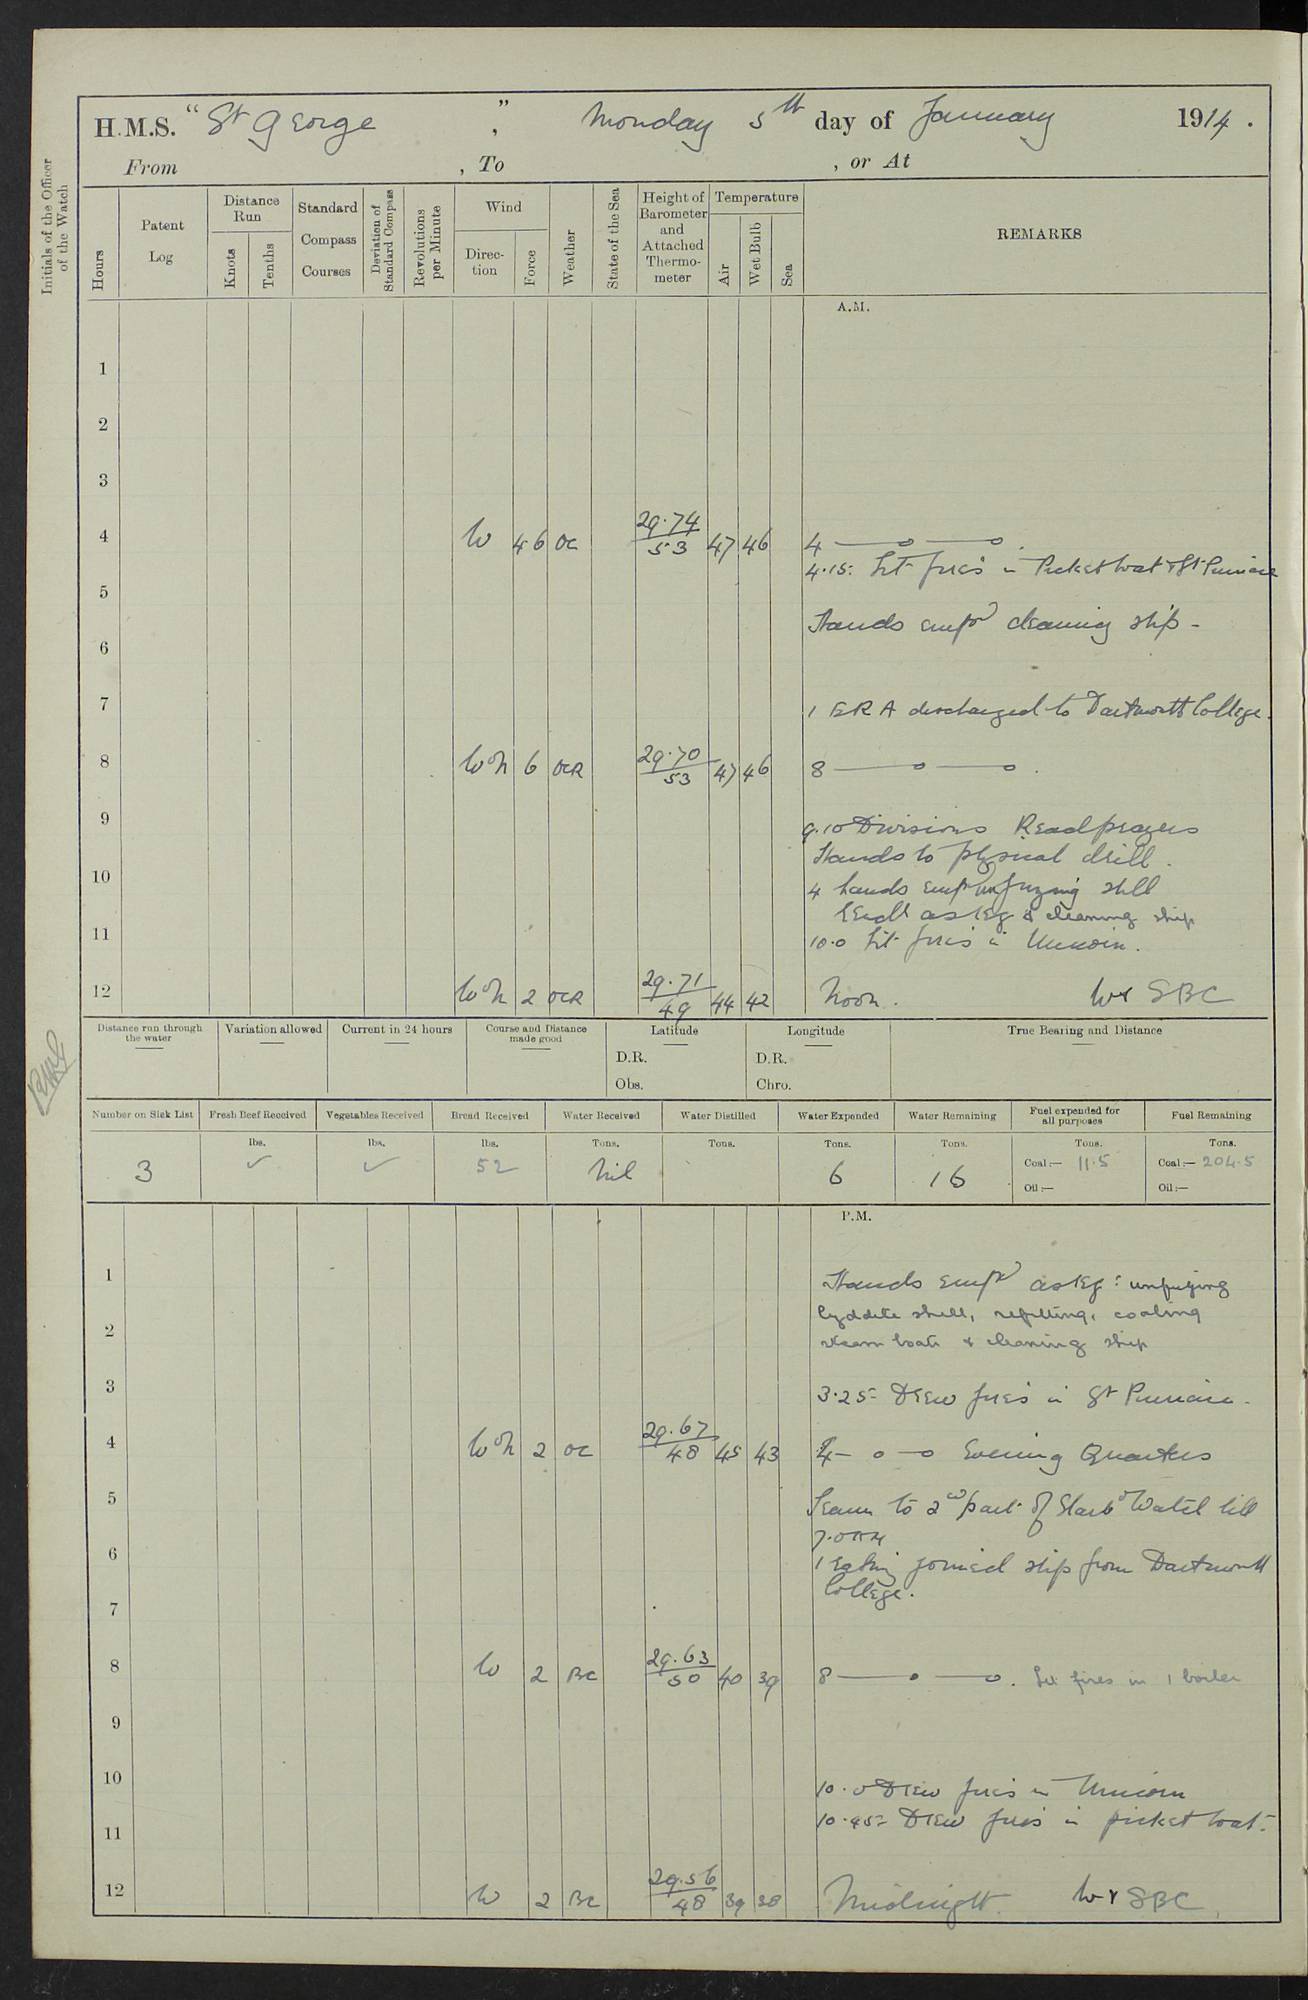 H.M.S. "St George", Monday 5th day of January 1914.
From , To , or At
Initials of the Officer of the Watch
Hours
Patent Log
Distance Run
Knots
Tenths
Standard Compass Courses
Deviation of Standard Compass
Revolutions per Minute
Wind
Direction
Force
Weather
State of the Sea
Height of Barometer and Attached Thermometer
Temperature
Air
Wet Bulb
Sea
REMARKS
A.M.
1
2
3
4 W 4 6 OC 29.74 53 47 46 4 —o —o.
4.15 Lit fires in Picket boat & St Purnace
5
Hands empd cleaning ship -
6
7 1 ERA discharged to Dartmouth College.
8 WoN 6 OCR 29.70 53 47 46 8 —o —o.
9 9.10 Divisions Read prayers
Hands to physical drill.
10 4 hands empd unfuzing shell
Remdr as req & cleaning ship
11 10.0 Lit fires in Unicorn.
12 WoN 2 OCR 29.71 49 44 42 Noon. W & SBC
Distance run through the water
Variation allowed
Current in 24 hours
Course and Distance made good
Latitude
D.R.
Obs.
Longitude
D.R.
Chro.
True Bearing and Distance
Number on Sick List
Fresh Beef Received
Vegetables Received
Bread Received
Water Received
Water Distilled
Water Expended
Water Remaining
Fuel expended for all purposes
Fuel Remaining
lbs. lbs. lbs. Tons. Tons. Tons. Tons. Tons. Tons.
3 ✓ ✓ 52 Nil 6 16 Coal:— 11.5 Coal:— 204.5
Oil:— Oil:—
P.M.
1 Hands empd as req: unfuzing
lyddite shell, refitting, coaling
2 steam boats & cleaning ship
3 3.25 Drew fires in St Purnace.
4 WoN 2 OC 29.67 48 45 43 4 — o — o Evening Quarters
5 Leave to 2nd part of Starbd Watch till
7.0 AM
6 1 rating joined ship from Dartmouth
College.
7
8 W 2 BC 29.63 50 40 39 8 —o —o. Lit fires in 1 boiler
9
10 10.0 Drew fires in Unicorn
10.45 Drew fires in picket boat.
11
12 W 2 BC 29.56 48 39 38 Midnight. W & SBC